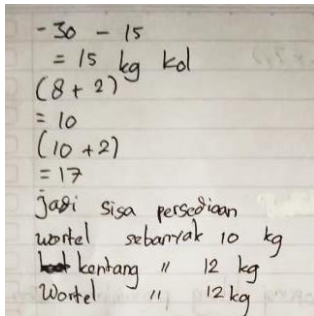 - 30 - 15
= 15 kg kol
(8 + 2)
= 10
(10 + 2)
= 17
jadi sisa persediaan
wortel sebanyak 10 kg
kentang " 12 kg
Wortel " 12 kg